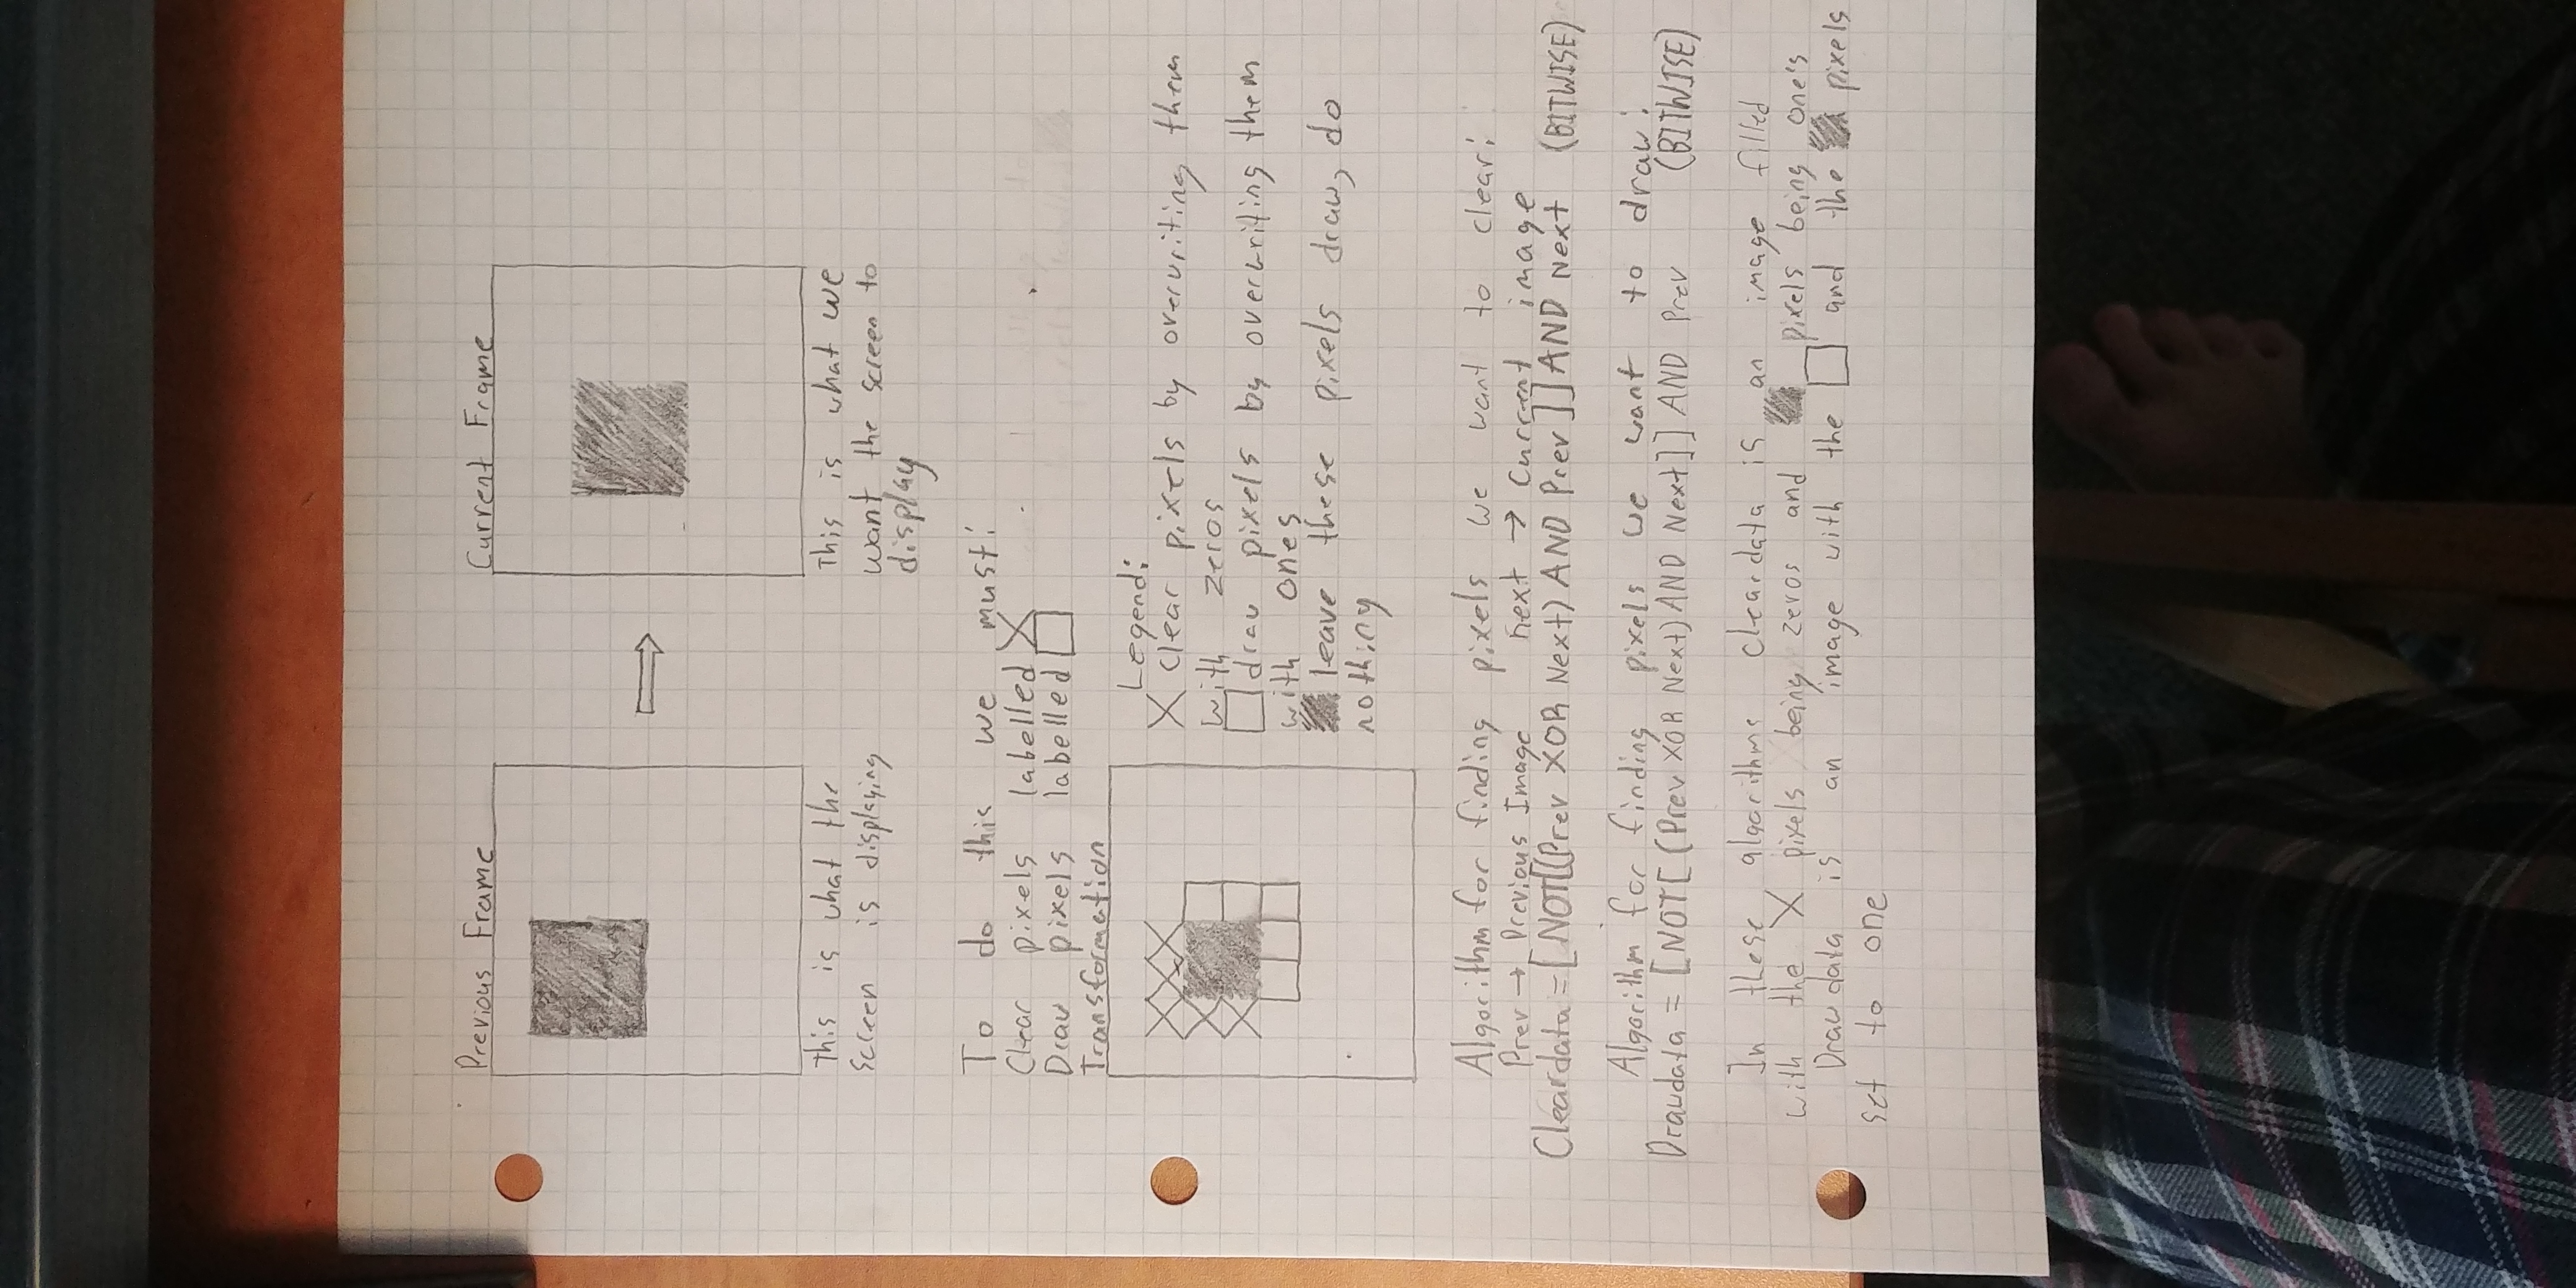 Previous Frame
Current Frame
This is what the
screen is displaying
This is what we
want the screen to
display
To do this we must:
Clear pixels labelled X
Draw pixels labelled □
Transformation
Legend:
X clear pixels by overwriting them
with zeros
□ draw pixels by overwriting them
with ones
leave these pixels draw, do
nothing
Algorithm for finding pixels we want to clear:
Prev → Previous Image next → current image
Cleardata = [NOT[(Prev XOR Next) AND Prev]] AND Next (BITWISE)
Algorithm for finding pixels we want to draw:
Drawdata = [NOT[(Prev XOR Next) AND Next]] AND Prev (BITWISE)
In these algorithms cleardata is an image filled
with the X pixels being zeros and pixels being one's
Drawdata is an image with the □ and the pixels
set to one